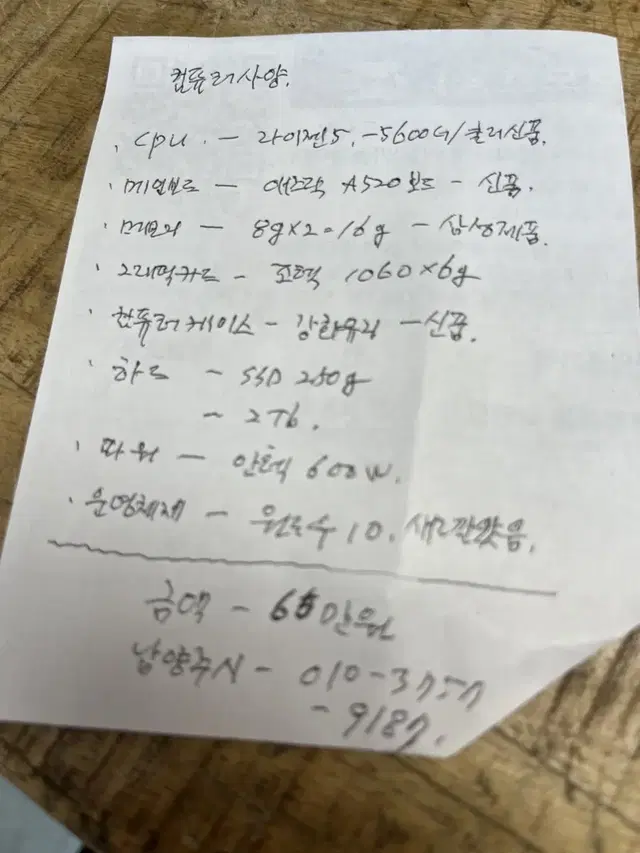 컴퓨터사양.
· cpu. - 라이젠5. -5600G/쿨러신품.
· 메인보드 - 애즈락 A520보드 - 신품.
· 메모리 - 8g×2=16g - 삼성제품.
· 그래픽카드 - 조텍 1060×6g
· 컴퓨터케이스 - 강화유리 - 신품.
· 하드 - SSD 250g
- 2Tb.
· 파워 - 안텍 600w.
· 운영체제 - 윈도우 10. 새로깔았음.
금액 - 65만원
남양주시 - 010-3757
- 9187.